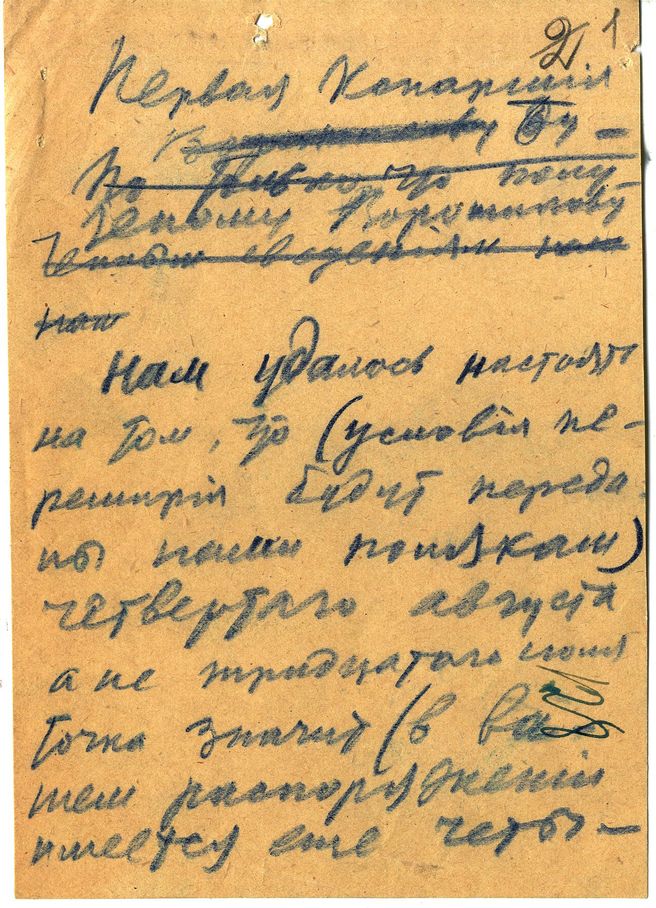 2 1
Первая Конармия
Ворошилову Бу-
По только что полу
деному Ворошилову
ченным сведениям нам
нам
Нам удалось настоять
на том, что (условия пе-
ремирия будут переда-
ны нами полякам)
четвертого августа
а не тридцатого июля
точка значит (в ва
шем распоряжении
имеется еще четы-